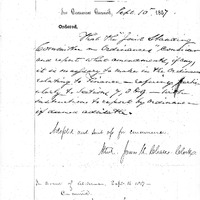 In Common Council, Sept. 10th 1887
Ordered,
That the Joint Standing
Committee on Ordinances consider
and report what amendments, if any,
it is necessary to make in the Ordinance
relating to Finance
to Sections 7, 8 & 9 with
instructions to report by ordinance
if deemed advisable.
Adopted and sent up for concurrence.
Attest, John H. Clerk
In Board of Aldermen, Sept. 12 1887
Concurred.